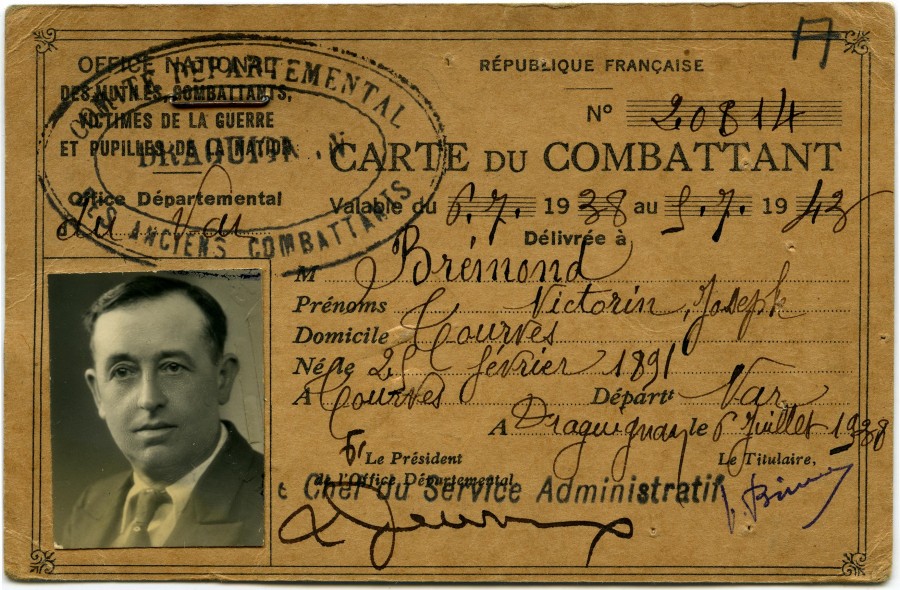 OFFICE NATIONAL
DES MUTILÉS, COMBATTANTS,
VICTIMES DE LA GUERRE
ET PUPILLES DE LA NATION
Office Départemental
du Var
COMITÉ DÉPARTEMENTAL
DRAGUIGNAN
DES ANCIENS COMBATTANTS
RÉPUBLIQUE FRANÇAISE
N° 20814
CARTE DU COMBATTANT
Valable du 6.7. 1938 au 5.7. 1943
Délivrée à
M Brémond
Prénoms Victorin, Joseph
Domicile Courves
Né le 25 février 1891
A Courves Départt Var
A Draguignan le 6 Juillet 1938
Pr Le Président Le Titulaire,
de l'Office Départemental,
Le Chef du Service Administratif